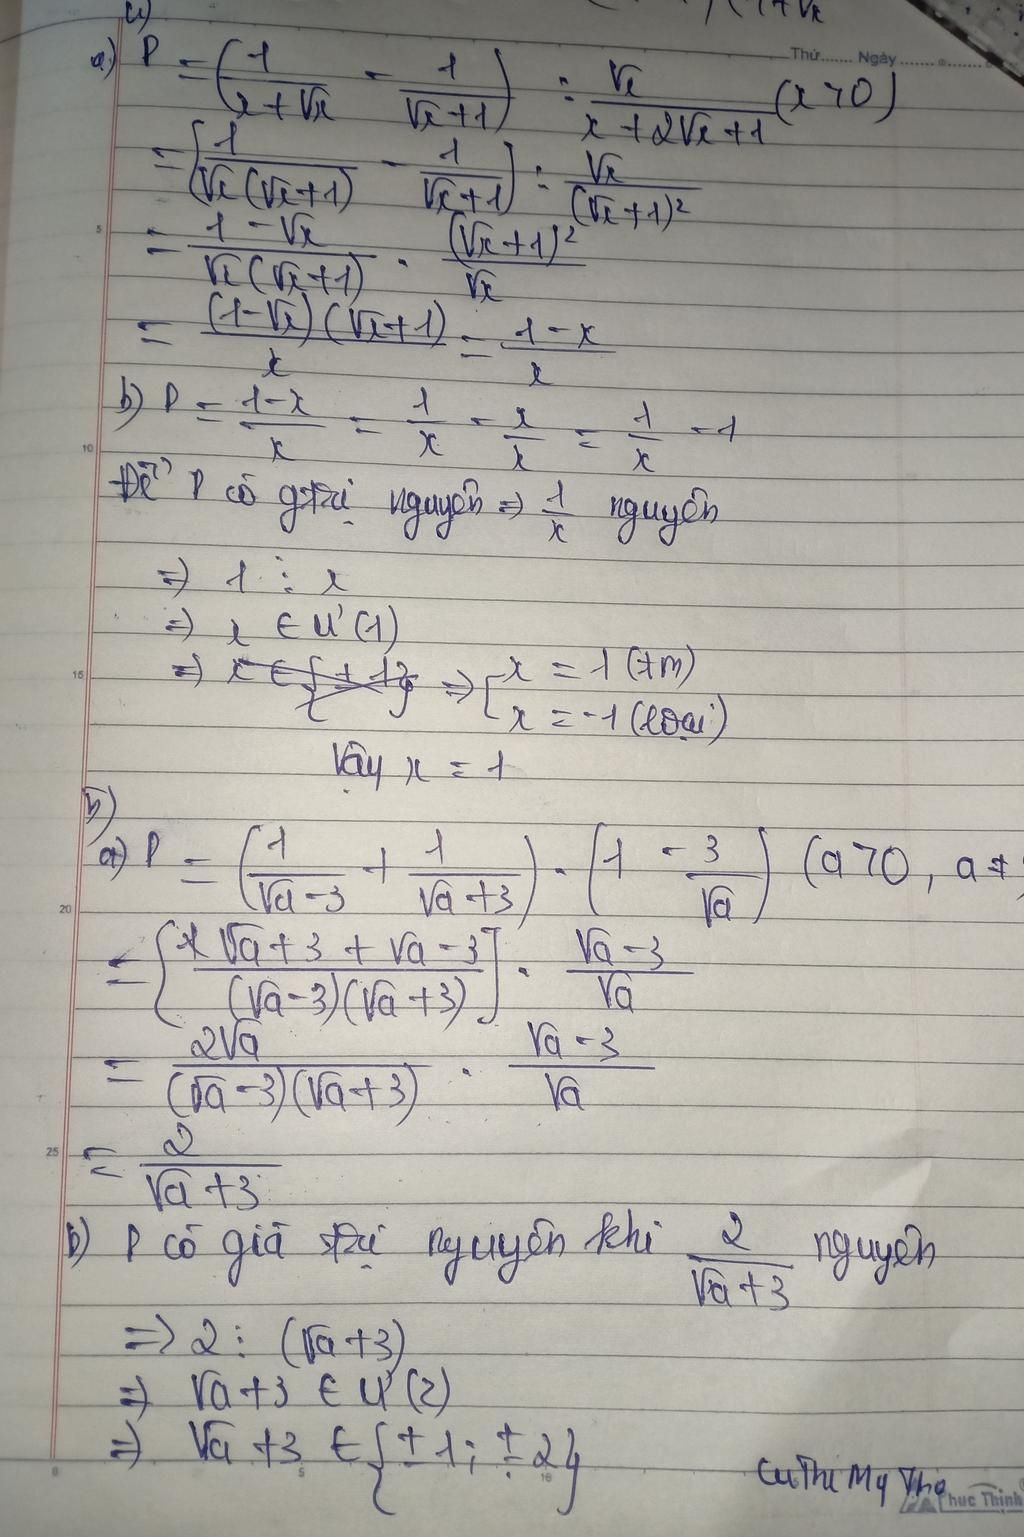 4)
Thứ...... Ngày........
a) P = (1/(x+√x) - 1/(√x+1)) : √x/(x+2√x+1) (x>0)
= [1/(√x(√x+1)) - 1/(√x+1)] : √x/(√x+1)²
= (1-√x)/(√x(√x+1)) . (√x+1)²/√x
= (1-√x)(√x+1)/x = (1-x)/x
b) P = (1-x)/x = 1/x - x/x = 1/x - 1
Để P có gtrị nguyên => 1/x nguyên
=> 1 ⋮ x
=> x ∈ Ư(1)
=> x ∈ {±1} => [x = 1 (tm)
x = -1 (loại)
Vậy x = 1
5)
a) P = (1/(√a-3) + 1/(√a+3)) . (1 - 3/√a) (a>0, a≠
= [(√a+3 + √a-3)/((√a-3)(√a+3))] . (√a-3)/√a
= 2√a/((√a-3)(√a+3)) . (√a-3)/√a
= 2/(√a+3)
b) P có giá trị nguyên khi 2/(√a+3) nguyên
=> 2 ⋮ (√a+3)
=> √a+3 ∈ Ư(2)
=> √a+3 ∈ {±1; ±2}
5
10
15
20
25
0
5
10
Cu Thi My Tho
huc Thinh